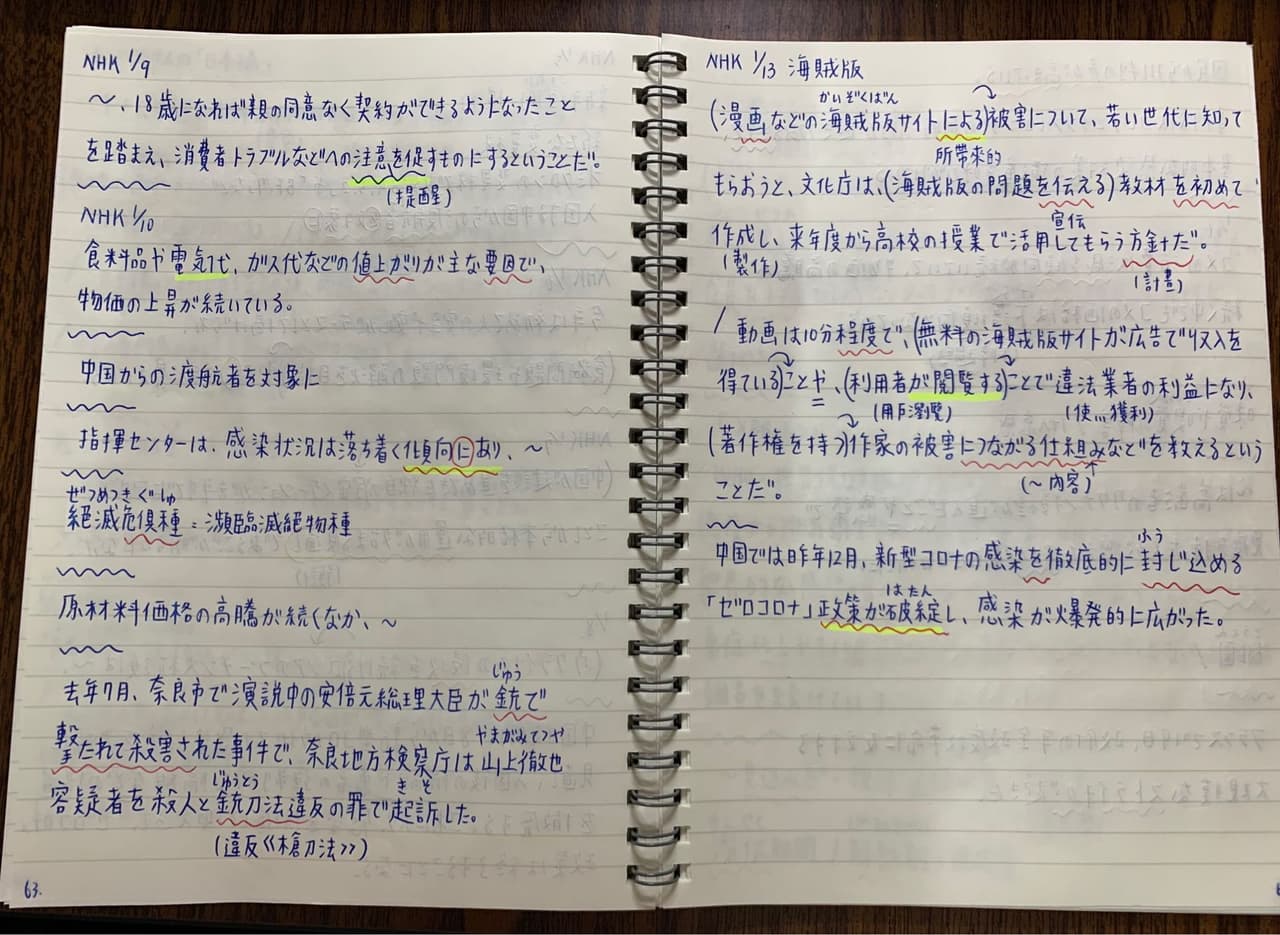 NHK 1/9
～、18歳になれば親の同意なく契約ができるようになったこと
を踏まえ、消費者トラブルなどへの注意を促すものにするということだ。
(提醒)
NHK 1/10
食料品や電気代、ガス代などの値上がりが主な要因で、
物価の上昇が続いている。
中国からの渡航者を対象に
指揮センターは、感染状況は落ち着く傾向にあり、～
ぜつめつきぐしゅ
絶滅危惧種＝瀕臨滅絕物種
原材料価格の高騰が続くなか、～
じゅう
去年7月、奈良市で演説中の安倍元総理大臣が銃で
やまがみてつや
撃たれて殺害された事件で、奈良地方検察庁は山上徹也
じゅうとう きそ
容疑者を殺人と銃刀法違反の罪で起訴した。
(違反《槍刀法》)
63.
NHK 1/13 海賊版
かいぞくばん
(漫画などの海賊版サイトによる)被害について、若い世代に知って
所帶来的
もらおうと、文化庁は、(海賊版の問題を伝える)教材を初めて
宣伝
作成し、来年度から高校の授業で活用してもらう方針だ。
(製作) (計畫)
/ 動画は10分程度で、(無料の海賊版サイトが広告で収入を
得ている)ことや、(利用者が閲覧する)ことで違法業者の利益になり、
(用戶瀏覽) (使…獲利)
(著作権を持つ)作家の被害につながる仕組みなどを教えるという
(～內容)
ことだ。
ふう
中国では昨年12月、新型コロナの感染を徹底的に封じ込める
はたん
「ゼロコロナ」政策が破綻し、感染が爆発的に広がった。